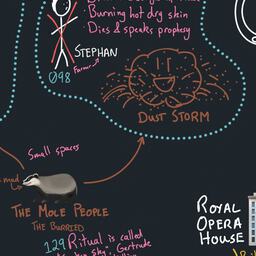 Burning hot dry skin
Dies & speaks prophesy
STEPHAN
Farmer
098
DUST STORM
Small spaces
mad
THE MOLE PEOPLE
THE BURRIED
129 Ritual is called
sky" Gertrude
ROYAL
OPERA
HOUSE